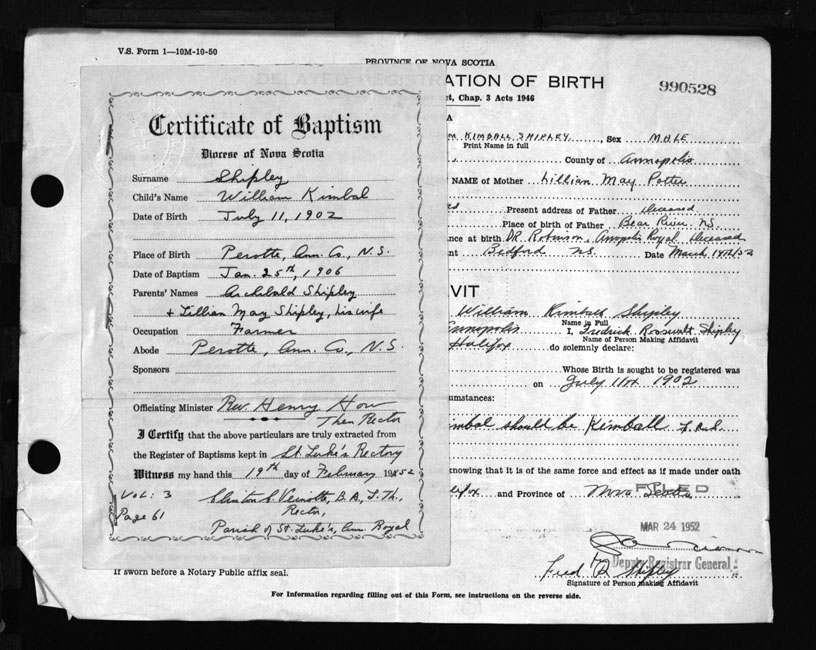 V.S. Form 1—10M-10-50
PROVINCE OF NOVA SCOTIA
DELAYED REGISTRATION OF BIRTH
990528
Chap. 3 Acts 1946
Certificate of Baptism
Diocese of Nova Scotia
Surname Shipley
Child's Name William Kimbal
Date of Birth July 11, 1902
Place of Birth Perotte, Ann. Co., N.S.
Date of Baptism Jan. 25th, 1906
Parents' Names Archibald Shipley
+ Lillian May Shipley, his wife
Occupation Farmer
Abode Perotte, Ann. Co., N.S.
Sponsors
Officiating Minister Rev. Henry How
Then Rector
I Certify that the above particulars are truly extracted from
the Register of Baptisms kept in St. Luke's Rectory
Witness my hand this 19th day of February 1952
Vol: 3
Page 61
B.A., L.Th.,
Rector,
Parish of St. Luke's, Ann. Royal
KIMBALL SHIPLEY, Sex MALE
Print Name in full
County of Annapolis
NAME of Mother Lillian May Potter
Present address of Father deceased
Place of birth of Father Bear River, N.S.
ance at birth DR. Robinson, Annapolis Royal, deceased
Bedford N.S. Date March 14th/52
VIT
William Kimball Shipley
Name in Full
Annapolis I, Fredrick Roosevelt Shipley
Name of Person Making Affidavit
Halifax do solemnly declare:
Whose Birth is sought to be registered was
on July 11th 1902
cumstances:
Kimbal should be Kimball
knowing that it is of the same force and effect as if made under oath
lifax and Province of Nova Scotia
FILED
MAR 24 1952
Deputy Registrar General
Fred R Shipley
Signature of Person making Affidavit
If sworn before a Notary Public affix seal.
For Information regarding filling out of this Form, see instructions on the reverse side.